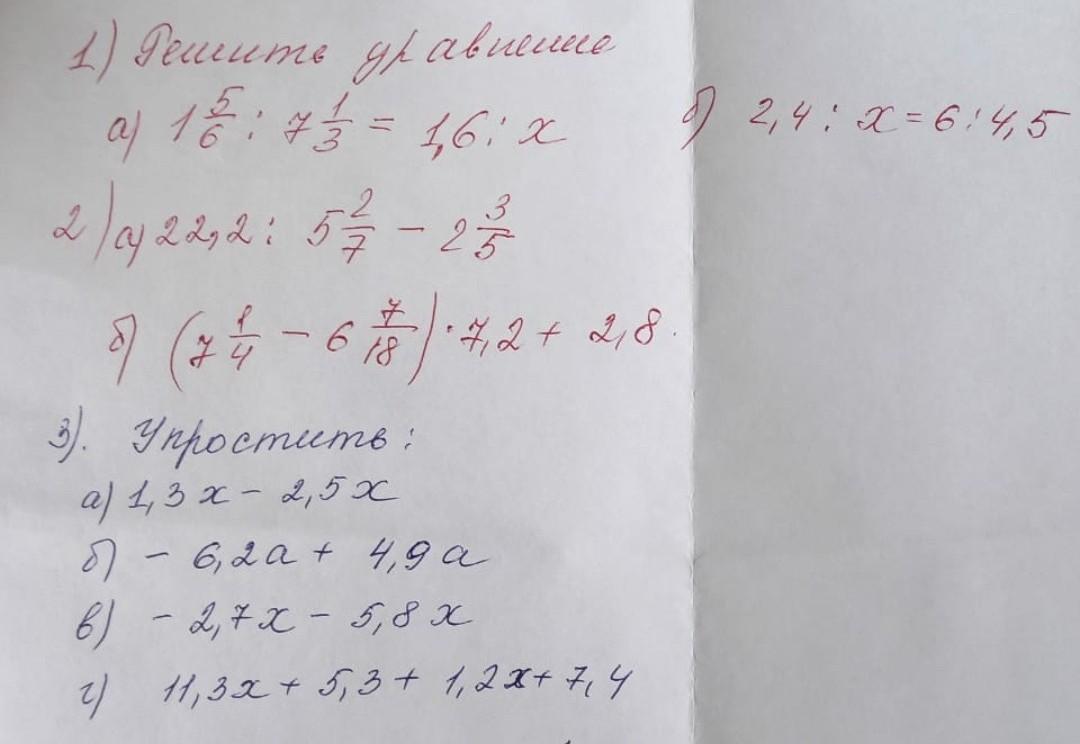 1) Решить уравнение
а) 1 5/6 : 7 1/3 = 1,6 : x б) 2,4 : x = 6 : 4,5
2) а) 22,2 : 5 2/7 - 2 3/5
б) (7 1/4 - 6 7/18) · 7,2 + 2,8
3). Упростить:
а) 1,3x - 2,5x
б) - 6,2a + 4,9a
в) - 2,7x - 5,8x
г) 11,3x + 5,3 + 1,2x + 7,4